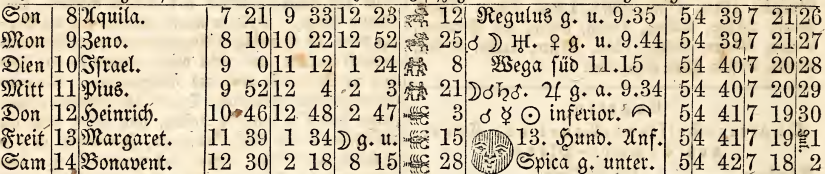 Son 8 Aquila. 7 21 9 33 12 23 12 Regulus g. u. 9.35 5 4 39 7 21 26
Mon 9 Zeno. 8 10 10 22 12 52 25 ☌ ☽ ♅. ♀ g. u. 9.44 5 4 39 7 21 27
Dien 10 Israel. 9 0 11 12 1 24 8 Wega süd 11.15 5 4 40 7 20 28
Mitt 11 Pius. 9 52 12 4 2 3 21 ☽☌♄. ♃ g. a. 9.34 5 4 40 7 20 29
Don 12 Heinrich. 10 46 12 48 2 47 3 ☌ ☿ ☉ inferior. 5 4 41 7 19 30
Freit 13 Margaret. 11 39 1 34 ☽ g. u. 15 13. Hund. Anf. 5 4 41 7 19 1
Sam 14 Bonavent. 12 30 2 18 8 15 28 Spica g. unter. 5 4 42 7 18 2